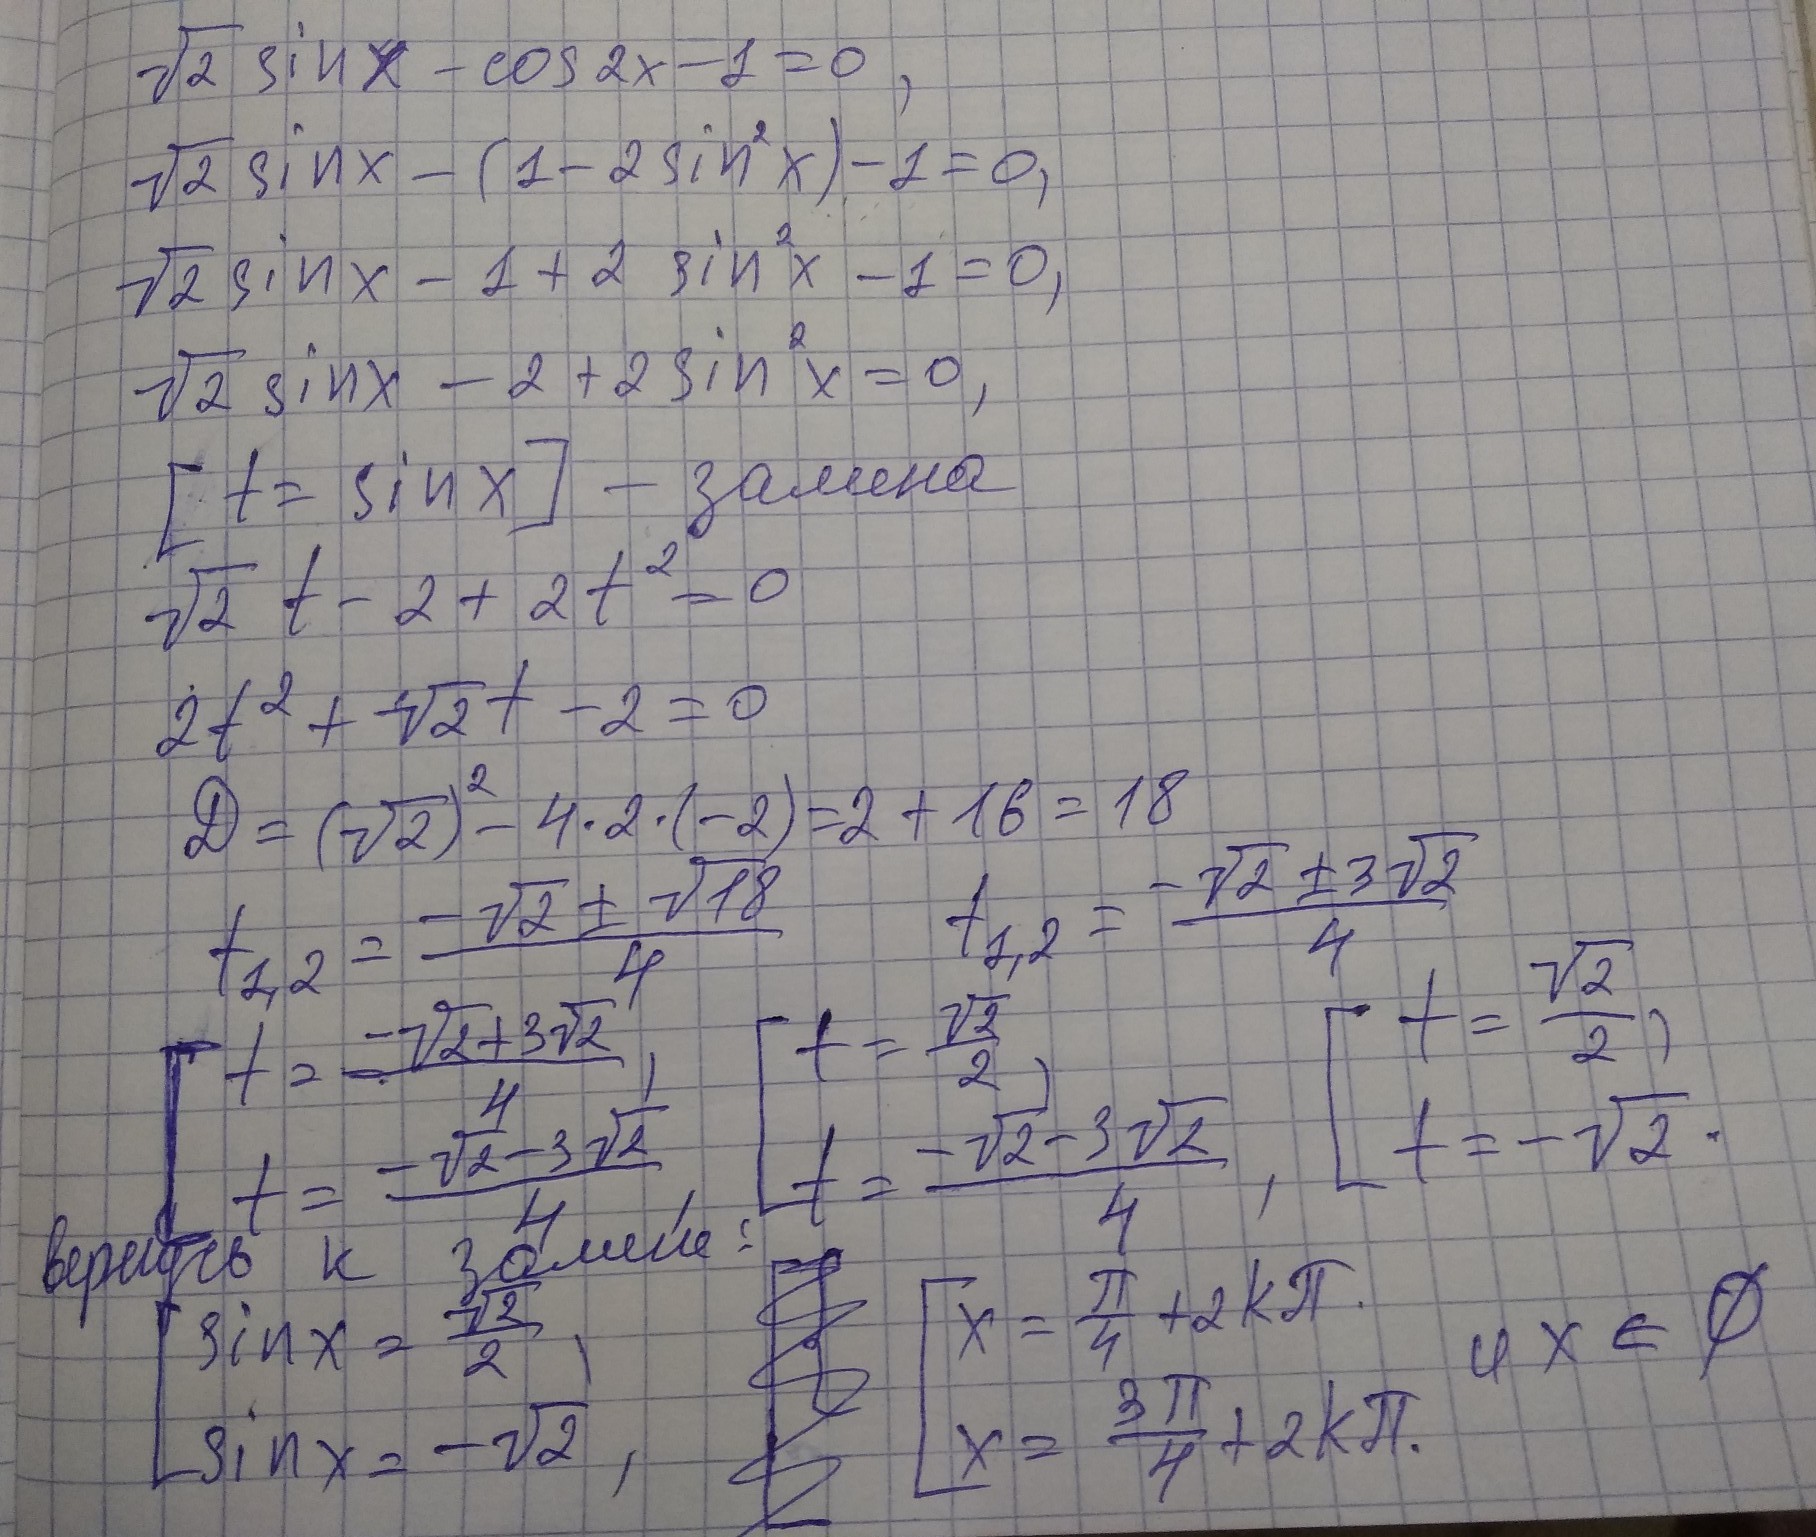 √2 sinx − cos2x − 1 = 0,
√2 sinx − (1 − 2sin²x) − 1 = 0,
√2 sinx − 1 + 2 sin²x − 1 = 0,
√2 sinx − 2 + 2sin²x = 0,
[t = sinx] − замена
√2 t − 2 + 2t² = 0
2t² + √2 t − 2 = 0
D = (√2)² − 4·2·(−2) = 2 + 16 = 18
t₁,₂ = (−√2 ± √18)/4 t₁,₂ = (−√2 ± 3√2)/4
[ t = (−√2 + 3√2)/4, [ t = √2/2, [ t = √2/2,
t = (−√2 − 3√2)/4, t = (−√2 − 3√2)/4, t = −√2.
вернусь к замене:
[ sinx = √2/2, [ x = π/4 + 2kπ. и x ∈ ∅
sinx = −√2, x = 3π/4 + 2kπ.